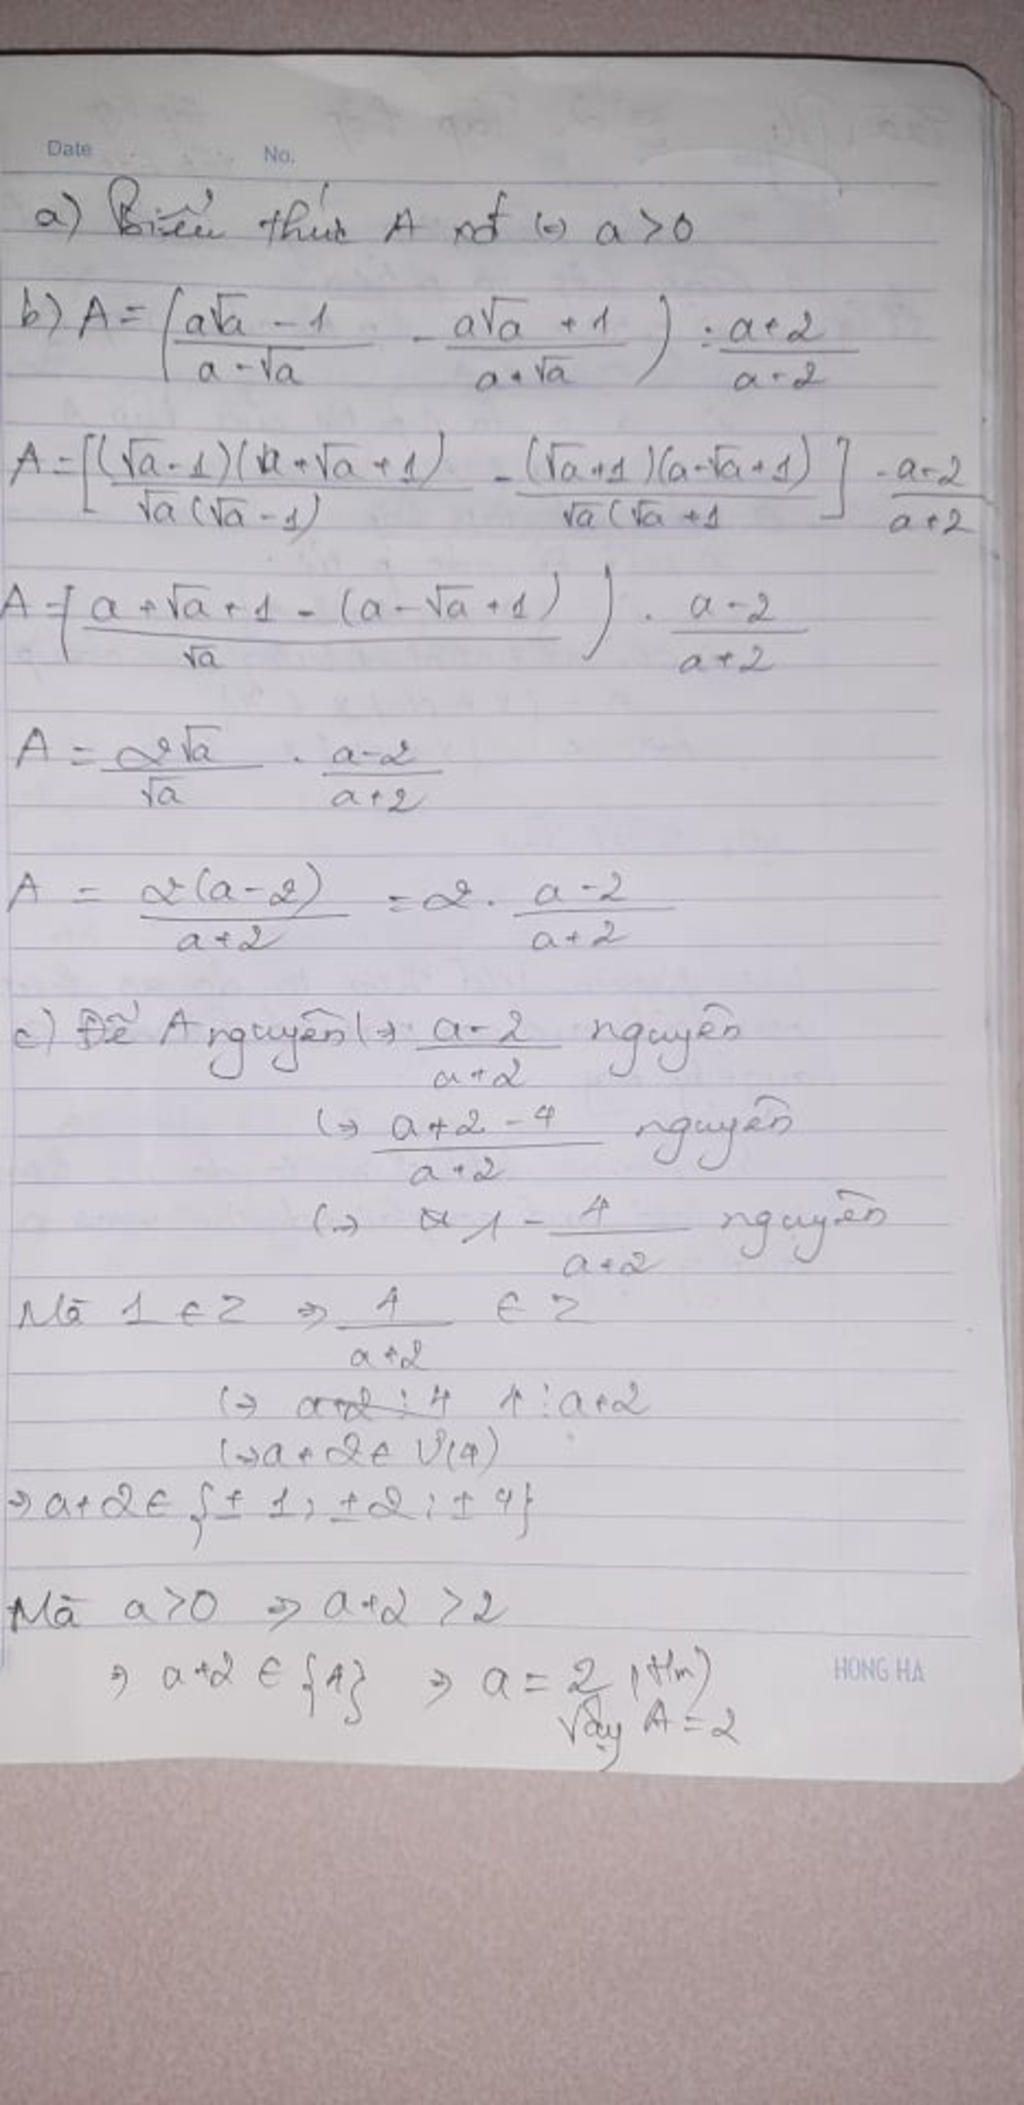 Date No.
a) Biểu thức A xđ (=) a>0
b) A = (a√a - 1 / a - √a - a√a + 1 / a + √a) : a+2 / a-2
A = [(√a-1)(a+√a+1) / √a(√a-1) - (√a+1)(a-√a+1) / √a(√a+1] . a-2 / a+2
A = (a+√a+1-(a-√a+1) / √a) . a-2 / a+2
A = 2√a / √a . a-2 / a+2
A = 2(a-2) / a+2 = 2. a-2 / a+2
c) Để A nguyên (=> a-2 / a+2 nguyên
(=> a+2-4 / a+2 nguyên
(=> 1 - 4 / a+2 nguyên
Mà 1 ∈ Z => 4 / a+2 ∈ Z
(=> a+2 ⋮ 4 4 ⋮ a+2
(=> a+2 ∈ Ư(4)
=> a+2 ∈ {±1; ±2; ±4}
Mà a>0 => a+2 >2
=> a+2 ∈ {4} => a = 2 (t/m)
Vậy A = 2
HONG HA